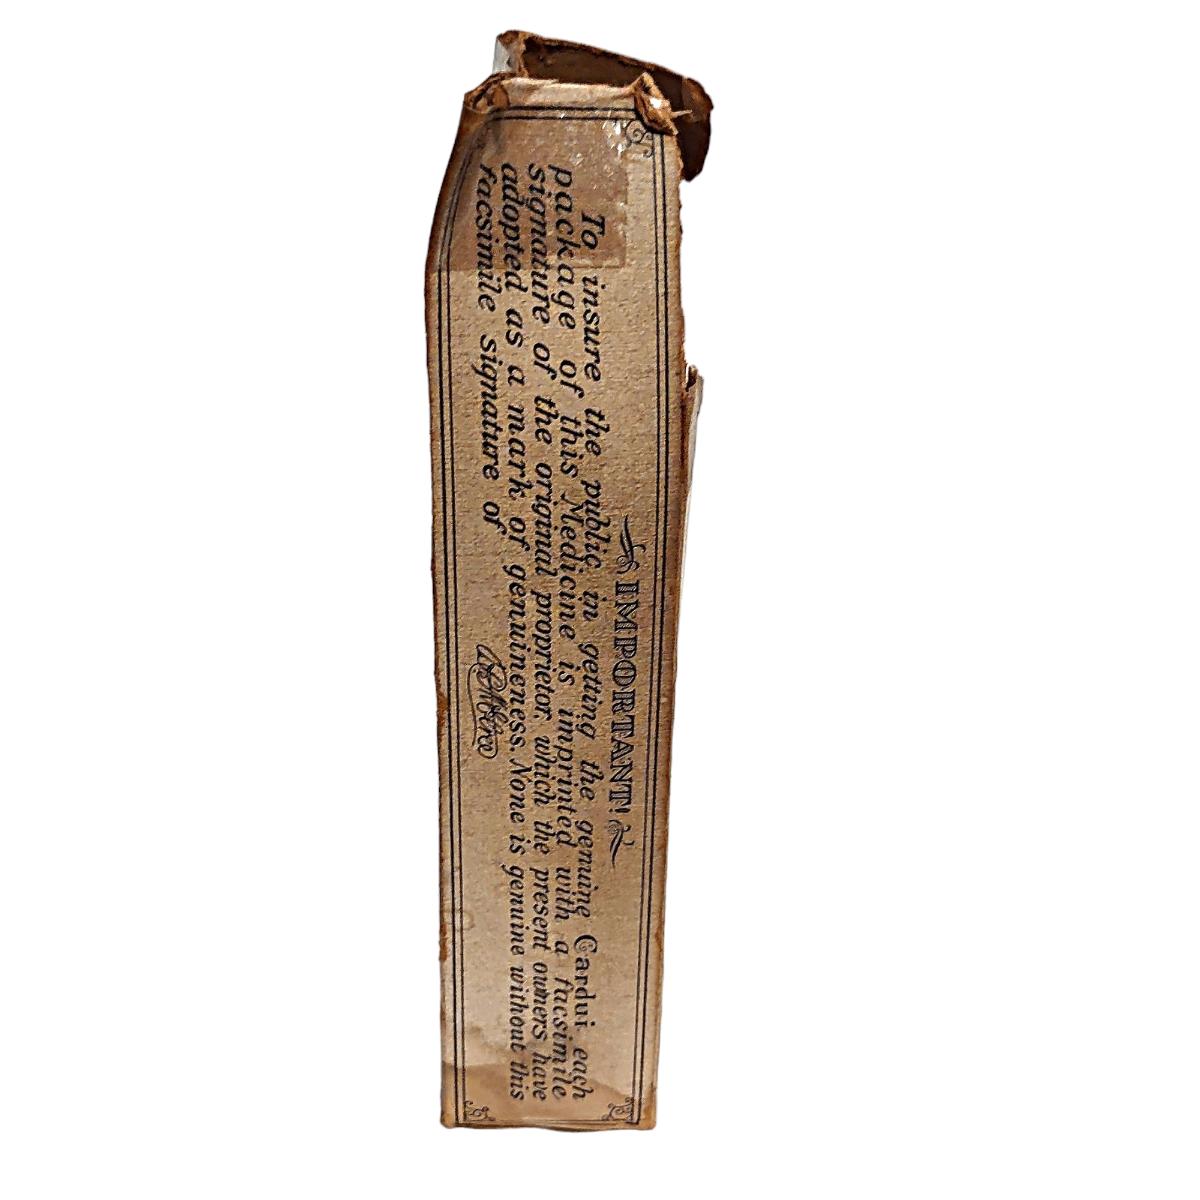 IMPORTANT!
To insure the public in getting the genuine Cardui each
package of this Medicine is imprinted with a facsimile
signature of the original proprietor, which the present owners have
adopted as a mark of genuineness. None is genuine without this
facsimile signature of